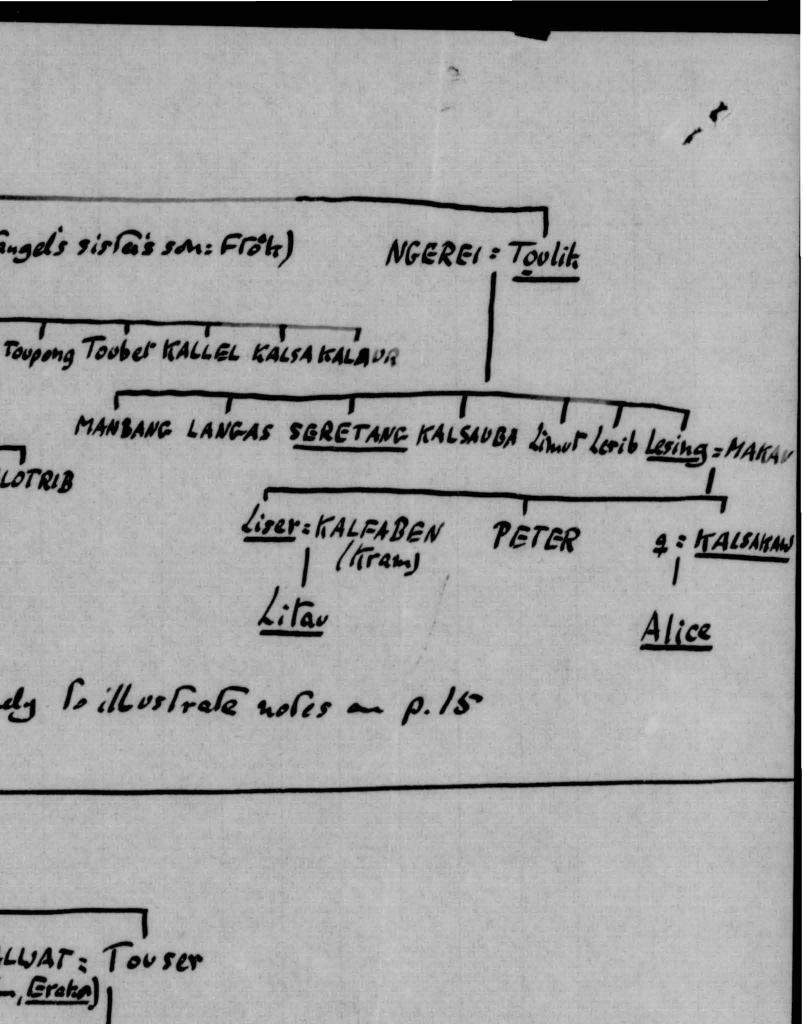 sister's son:
NGEREI = Toulik
Toupong Toubet KALLEL KALSA
MANBANG LANGAS SERETANG KALSAUBA Limut Lerib Lesing = MAKAU
LOTRIB
Liser = KALFABEN PETER ♀ = KALSAKAW
(Kram)
Litau Alice
to illustrate notes on p.15
= Touser